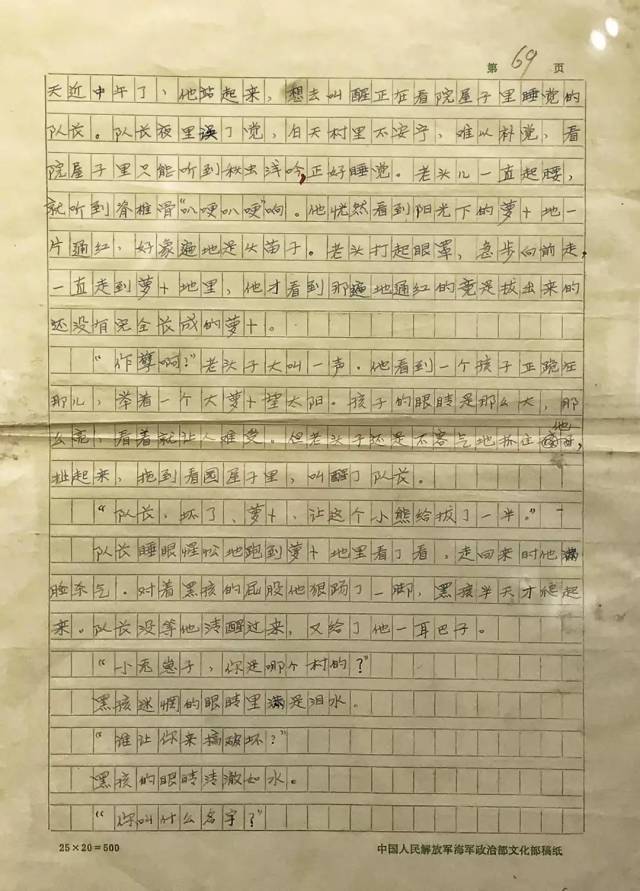 第 69 页
天近中午了，他站起来，想去叫醒正在看院屋子里睡觉的
队长。队长夜里误了觉，白天村里不安宁，难以补觉，看
院屋子里只能听到秋虫浮吟，正好睡觉。老头儿一直起腰，
就听到脊椎骨“叭哽叭哽”响。他恍然看到阳光下的萝卜地一
片通红，好象遍地是火苗子。老头打起眼罩，急步向前走，
一直走到萝卜地里，他才看到那遍地通红的竟是拔出来的
还没有完全长成的萝卜。
“作孽啊！”老头子大叫一声。他看到一个孩子正跪在
那儿，举着一个大萝卜望太阳。孩子的眼睛是那么大，那
么亮，看着就让人难受。但老头子还是不客气地抓住他，
扯起来，拖到看园屋子里，叫醒了队长。
“队长，坏了，萝卜，让这个小熊给拔了一半。”
队长睡眼惺忪地跑到萝卜地里看了看，走回来时他满
脸杀气。对着黑孩的屁股他狠踢了一脚，黑孩半天才爬起
来。队长没等他清醒过来，又给了他一耳巴子。
“小兔崽子，你是哪个村的？”
黑孩迷惘的眼睛里满是泪水。
“谁让你来搞破坏？”
黑孩的眼睛清澈如水。
“你叫什么名字？”
25×20=500
中国人民解放军海军政治部文化部稿纸